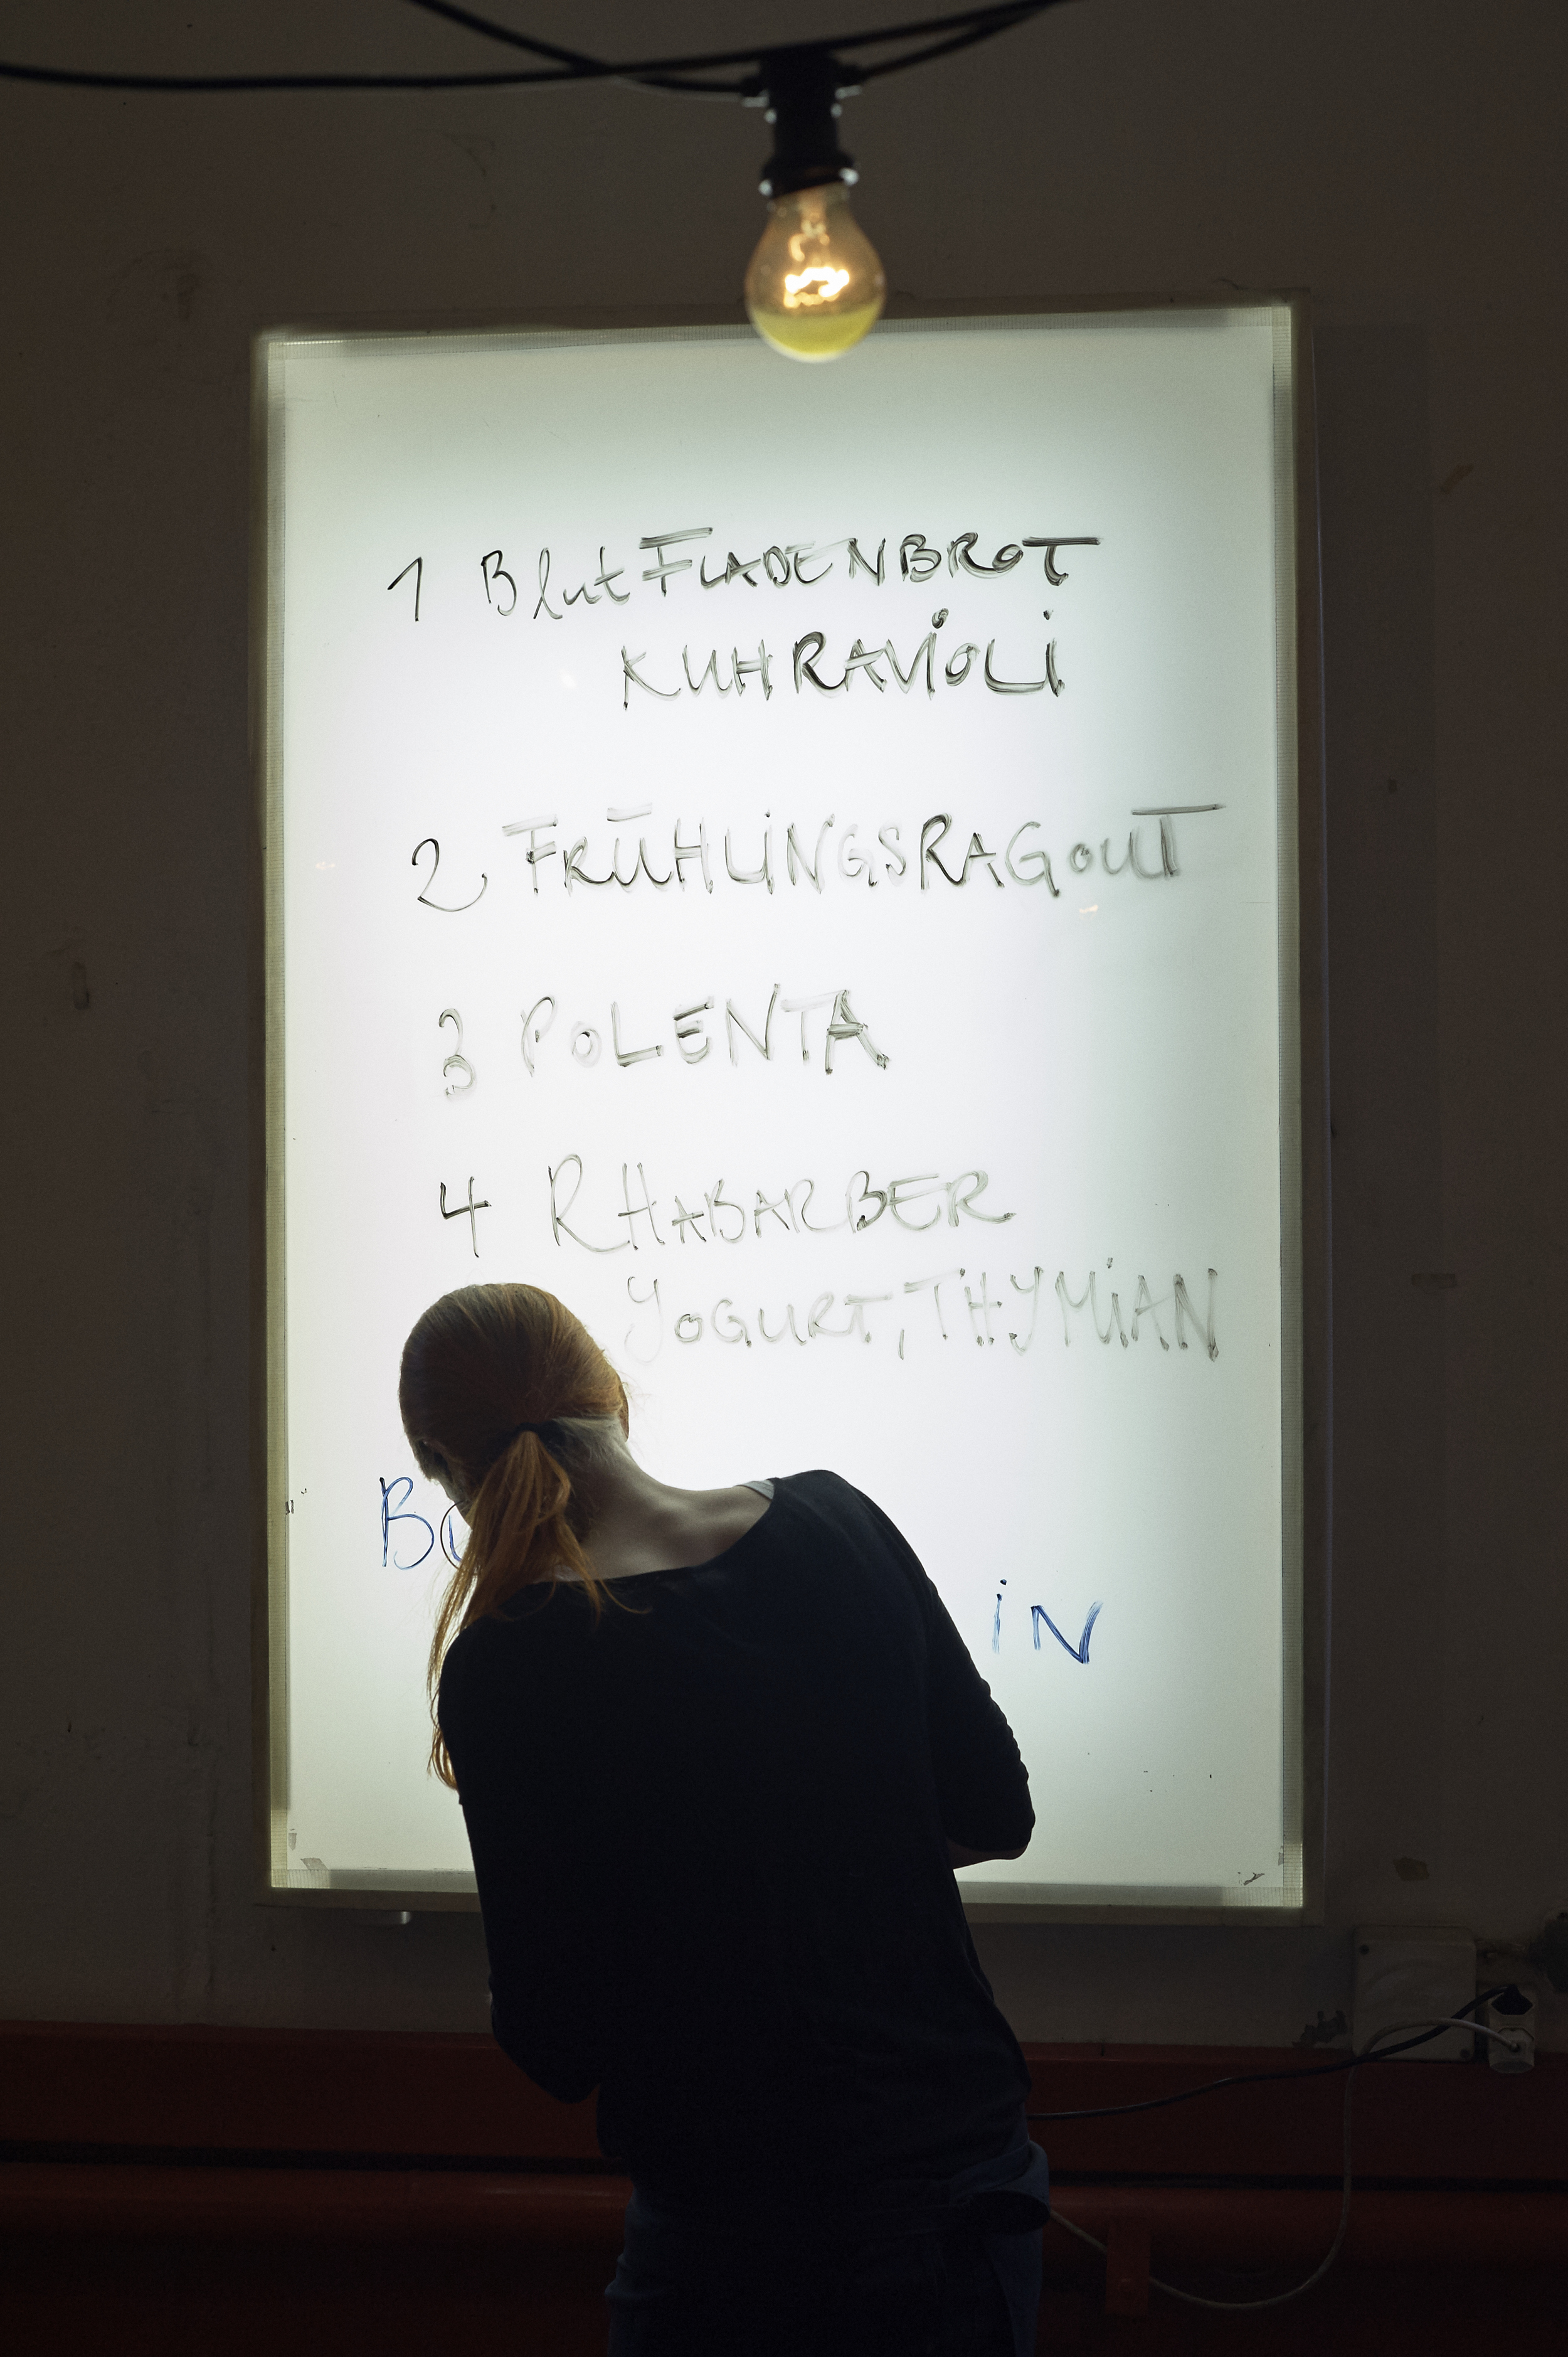 1 BlutFLADENBROT
KUHRAViOLi
2 FRÜHLiNGSRAGOUT
3 POLENTA
4 RHABARBER
YOGURT, THYMiAN
iN